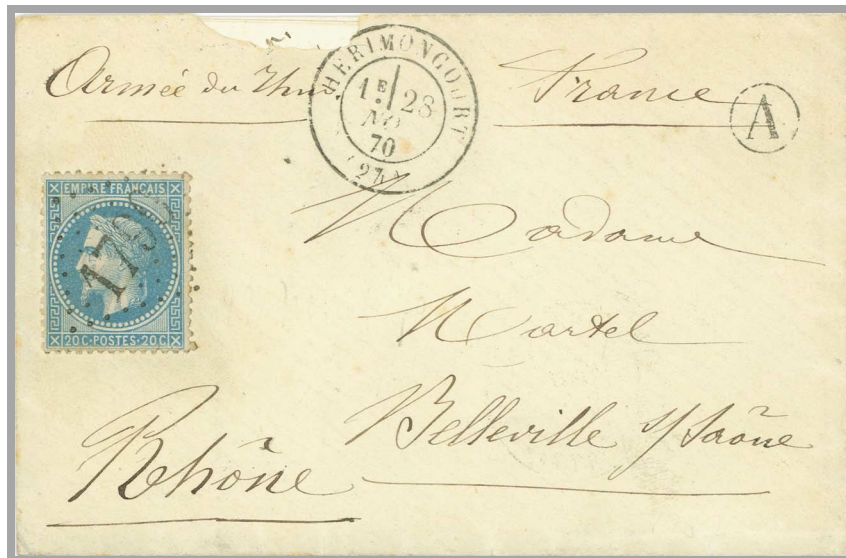 Armée du Rhin France
HERIMONCOURT
1E 28
NO
70
(24)
A
EMPIRE FRANÇAIS
20C·POSTES·20C
Madame
Martel
Belleville s/ Saône
Rhône